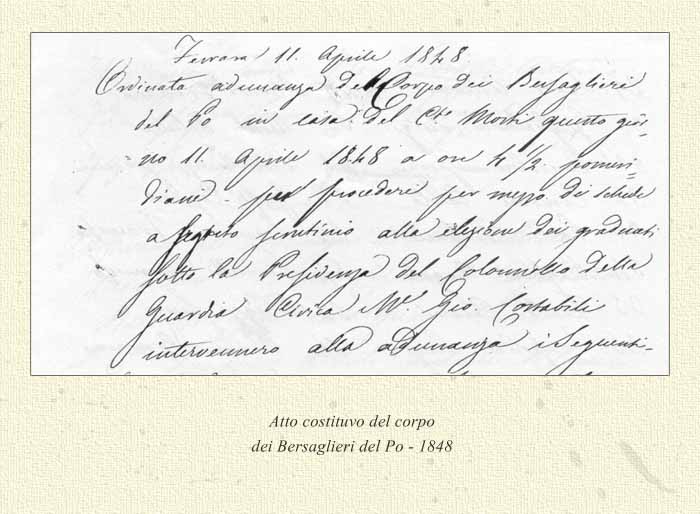 Ferrara 11. Aprile 1848
Ordinata adunanza del Corpo dei Bersaglieri
del Po in casa del Cte. Mosti questo gior-
no 11. Aprile 1848 a ore 4 1/2. pomeri=
diane - per procedere per mezzo di schede
a segreto scrutinio alla elezione dei graduati
sotto la Presidenza del Colonnello della
Guardia Civica Mse. Gio. Costabili
intervennero alla adunanza i Seguenti-
Atto costituvo del corpo
dei Bersaglieri del Po - 1848